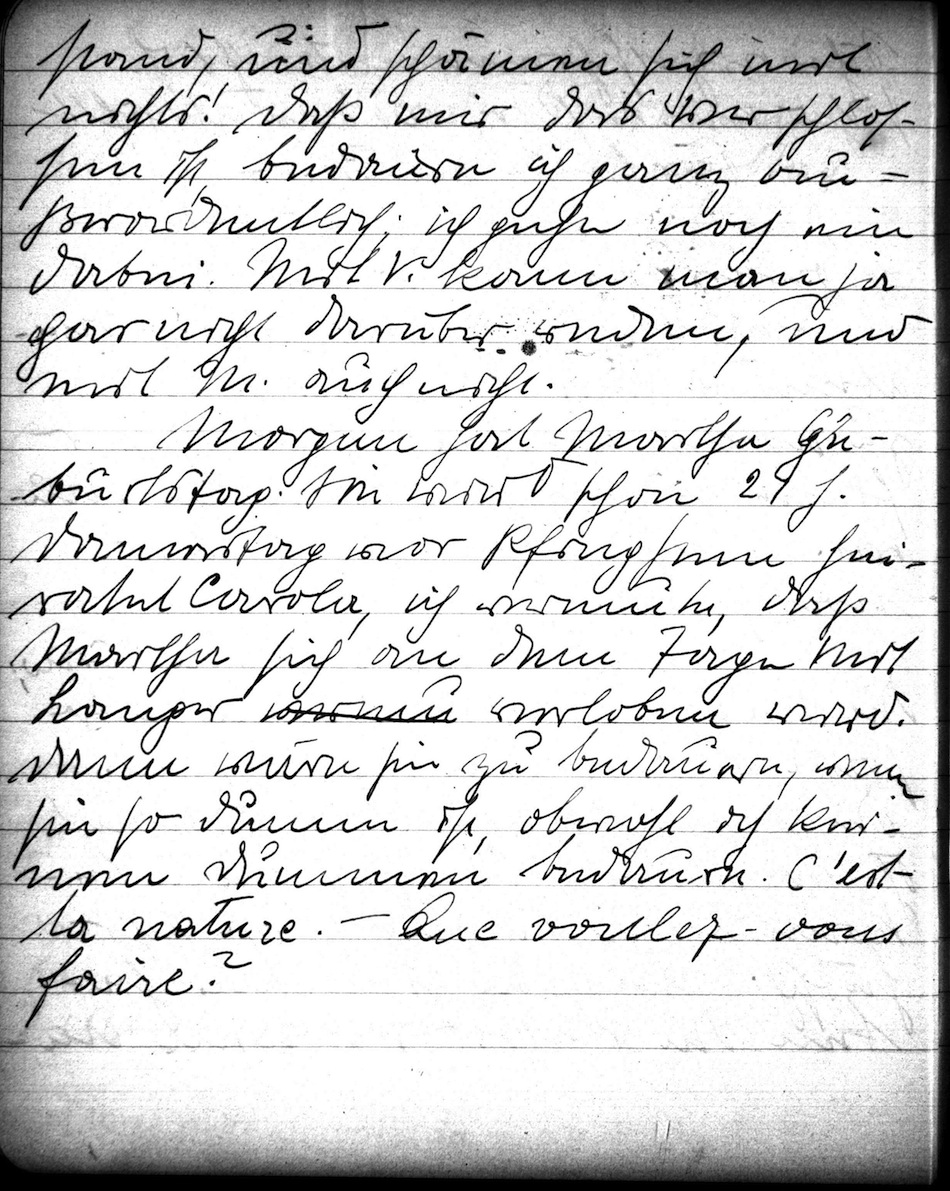 stand, und schämen sich mit
nichts! Daß mir das verschlos-
sen ist, bedauere ich ganz au-
ßerordentlich; ich gehe noch ein
dabei. Mit V. kann man ja
gar nicht darüber reden, und
mit M. auch nicht.
Morgen hat Martha Ge-
burtstag. Sie wird schon 29 J.
Donnerstag vor Pfingsten hei-
ratet Carola, ich vermute, daß
Martha sich an dem Tage mit
verloben wird.
Dann wäre sie zu bedauern, wenn
sie so dumm ist, obwohl ich kei-
nen Dummen bedaure. C'est
la nature. — Que voulez-vous
faire?